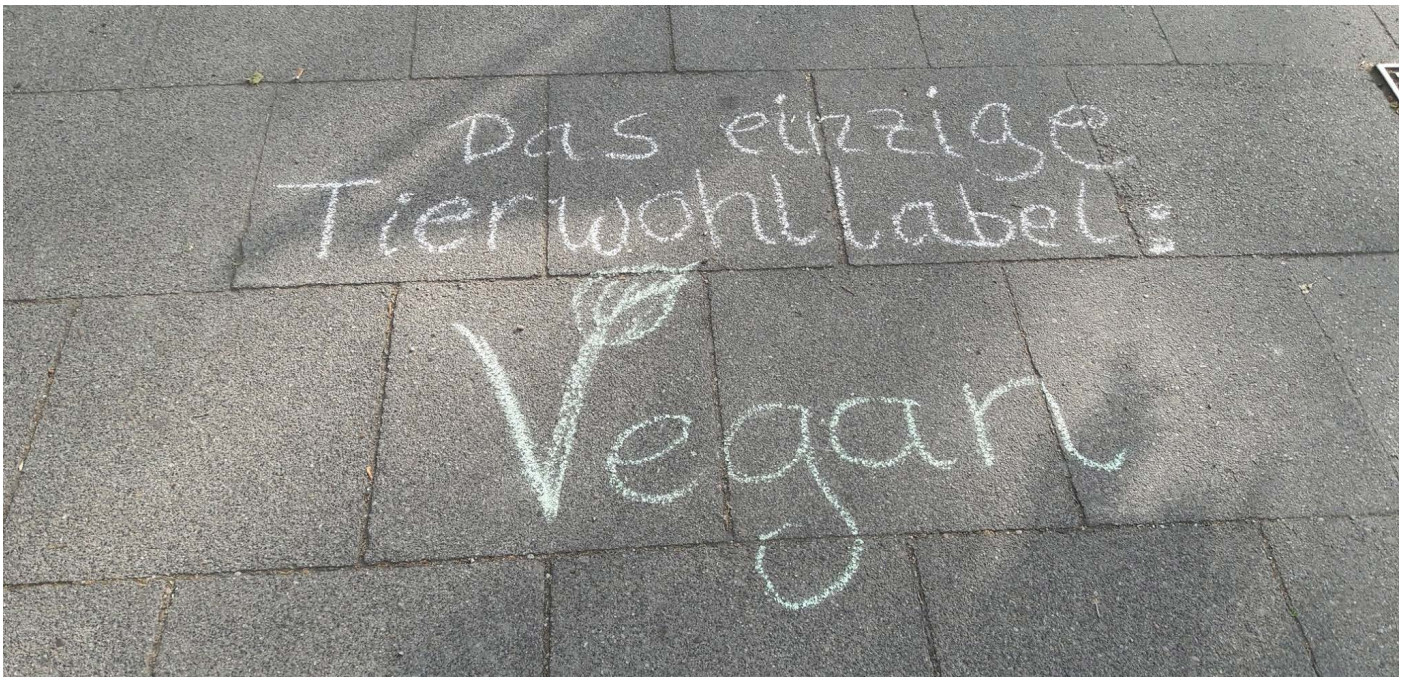 Das einzige
Tierwohllabel:
Vegan